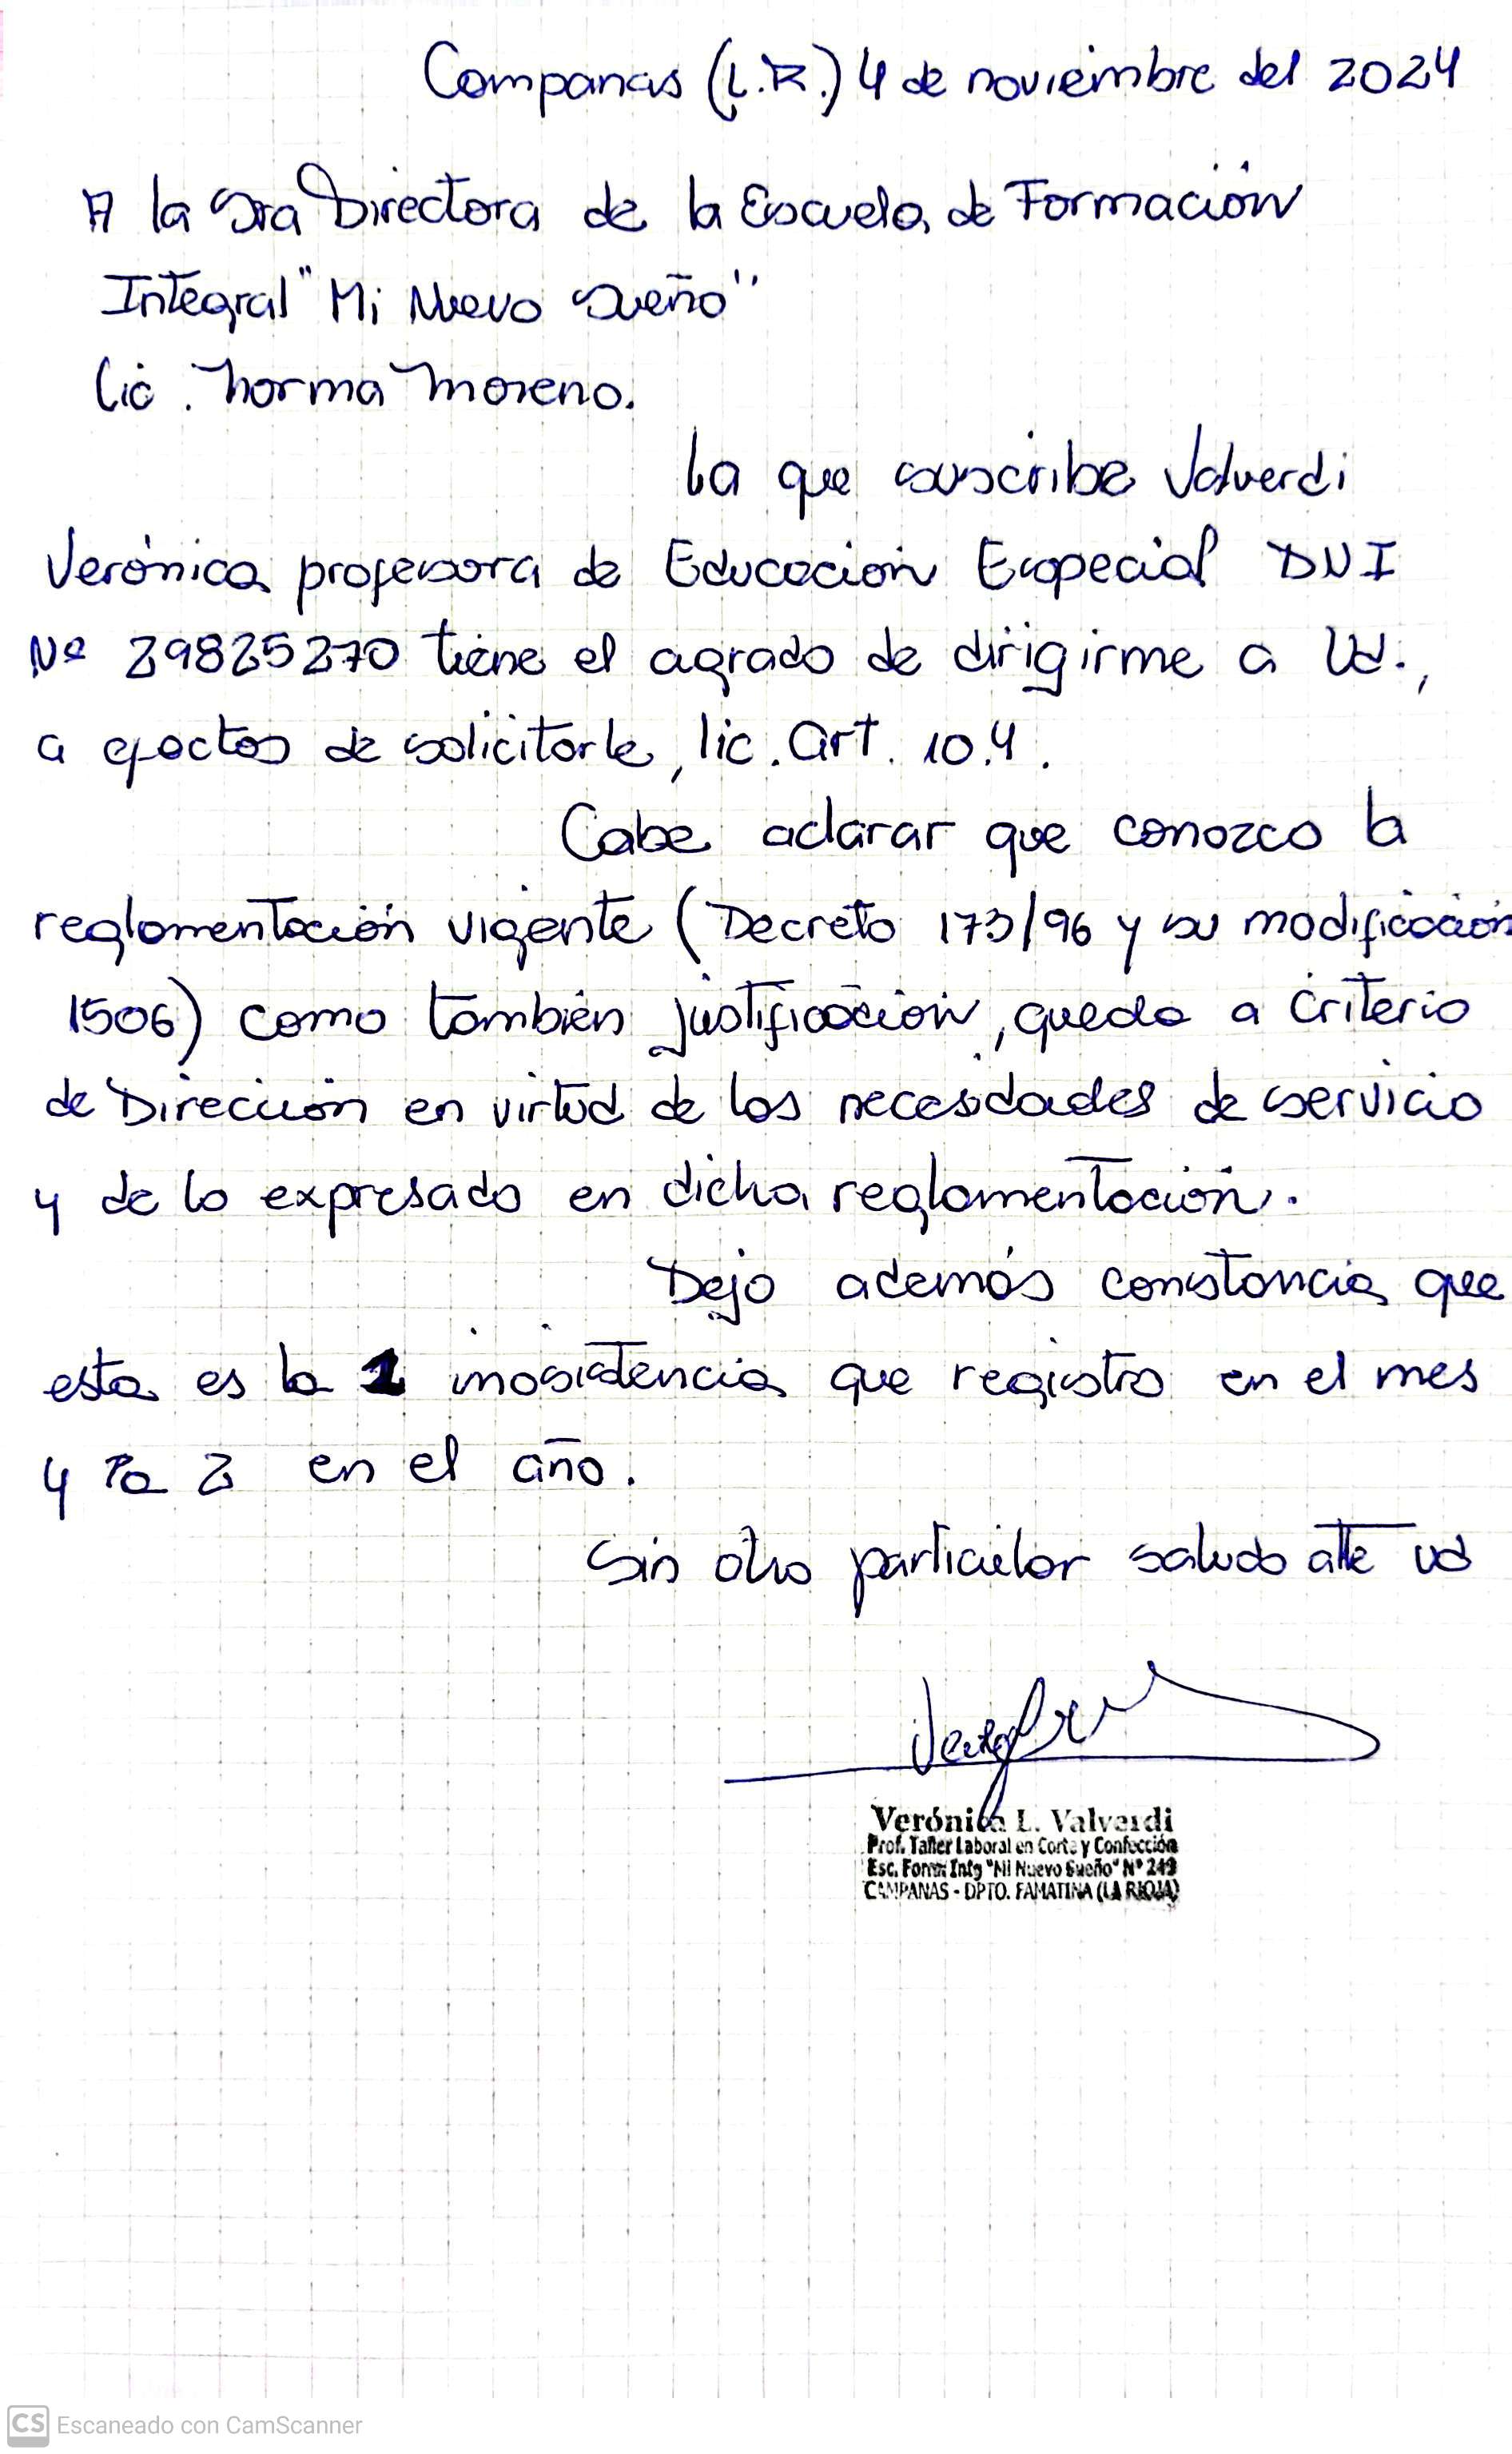 Campanas (L.R.) 4 de noviembre del 2024
A la Sra Directora de la Escuela de Formación
Integral "Mi Nuevo Sueño"
Lic. Norma Moreno.
La que suscribe Valverdi
Verónica profesora de Educación Especial DNI
Nº 29825270 tiene el agrado de dirigirme a Ud.,
a efectos de solicitarle, lic. art. 10.4.
Cabe aclarar que conozco la
reglamentación vigente (Decreto 173/96 y su modificación
1506) como también justificación, queda a criterio
de Dirección en virtud de las necesidades de servicio
y de lo expresado en dicha reglamentación.
Dejo además constancia que
esta es la 1 inasistencia que registro en el mes
y la 2 en el año.
Sin otro particular saludo atte ud
Verónica L. Valverdi
Prof. Taller Laboral en Corte y Confección
Esc. Form. Intg "Mi Nuevo Sueño" Nº 249
CAMPANAS - DPTO. FAMATINA (LA RIOJA)
CS Escaneado con CamScanner